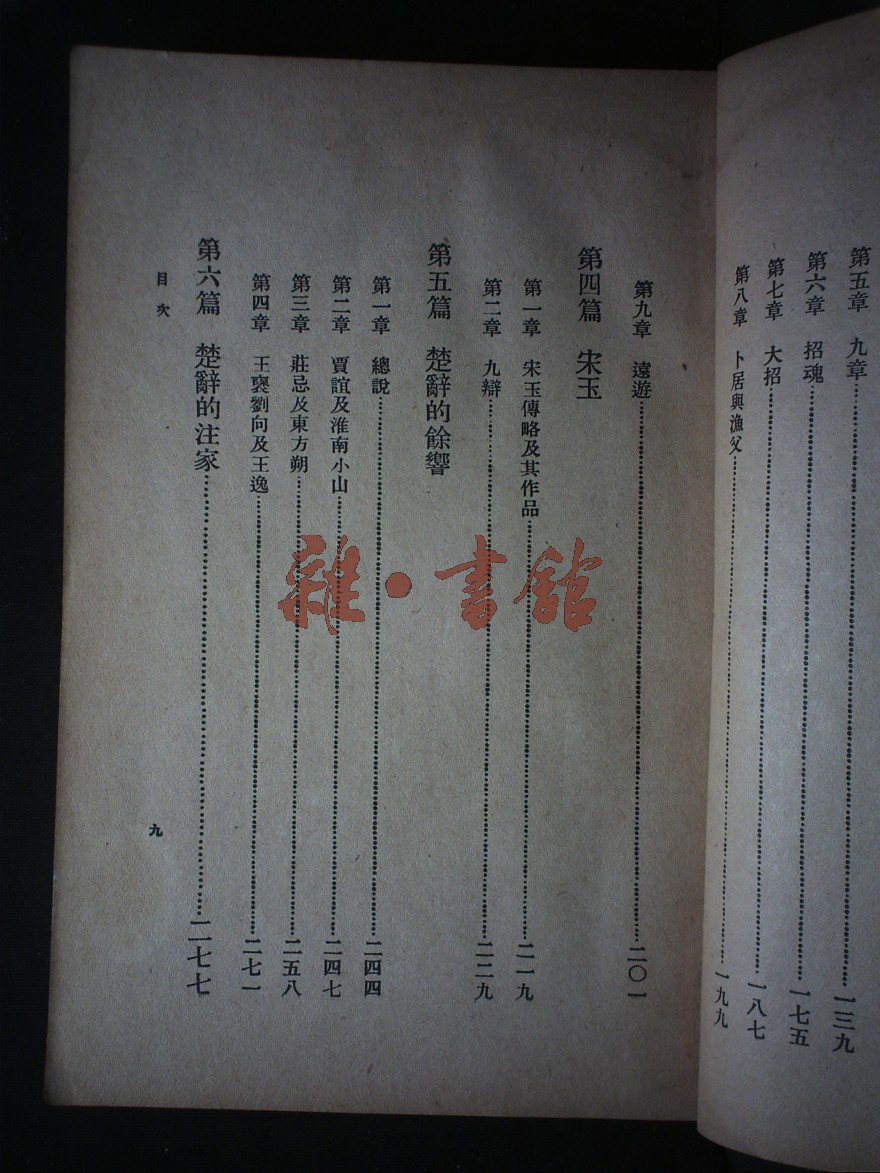 第五章　九章……一三九
第六章　招魂……一七五
第七章　大招……一八七
第八章　卜居與漁父……一九九
第九章　遠遊……二〇一
第四篇　宋玉
第一章　宋玉傳略及其作品……二一九
第二章　九辯……二二九
第五篇　楚辭的餘響
第一章　總說……二四四
第二章　賈誼及淮南小山……二四七
第三章　莊忌及東方朔……二五八
第四章　王褒劉向及王逸……二七一
第六篇　楚辭的注家……二七七
目次
九
雜·書館